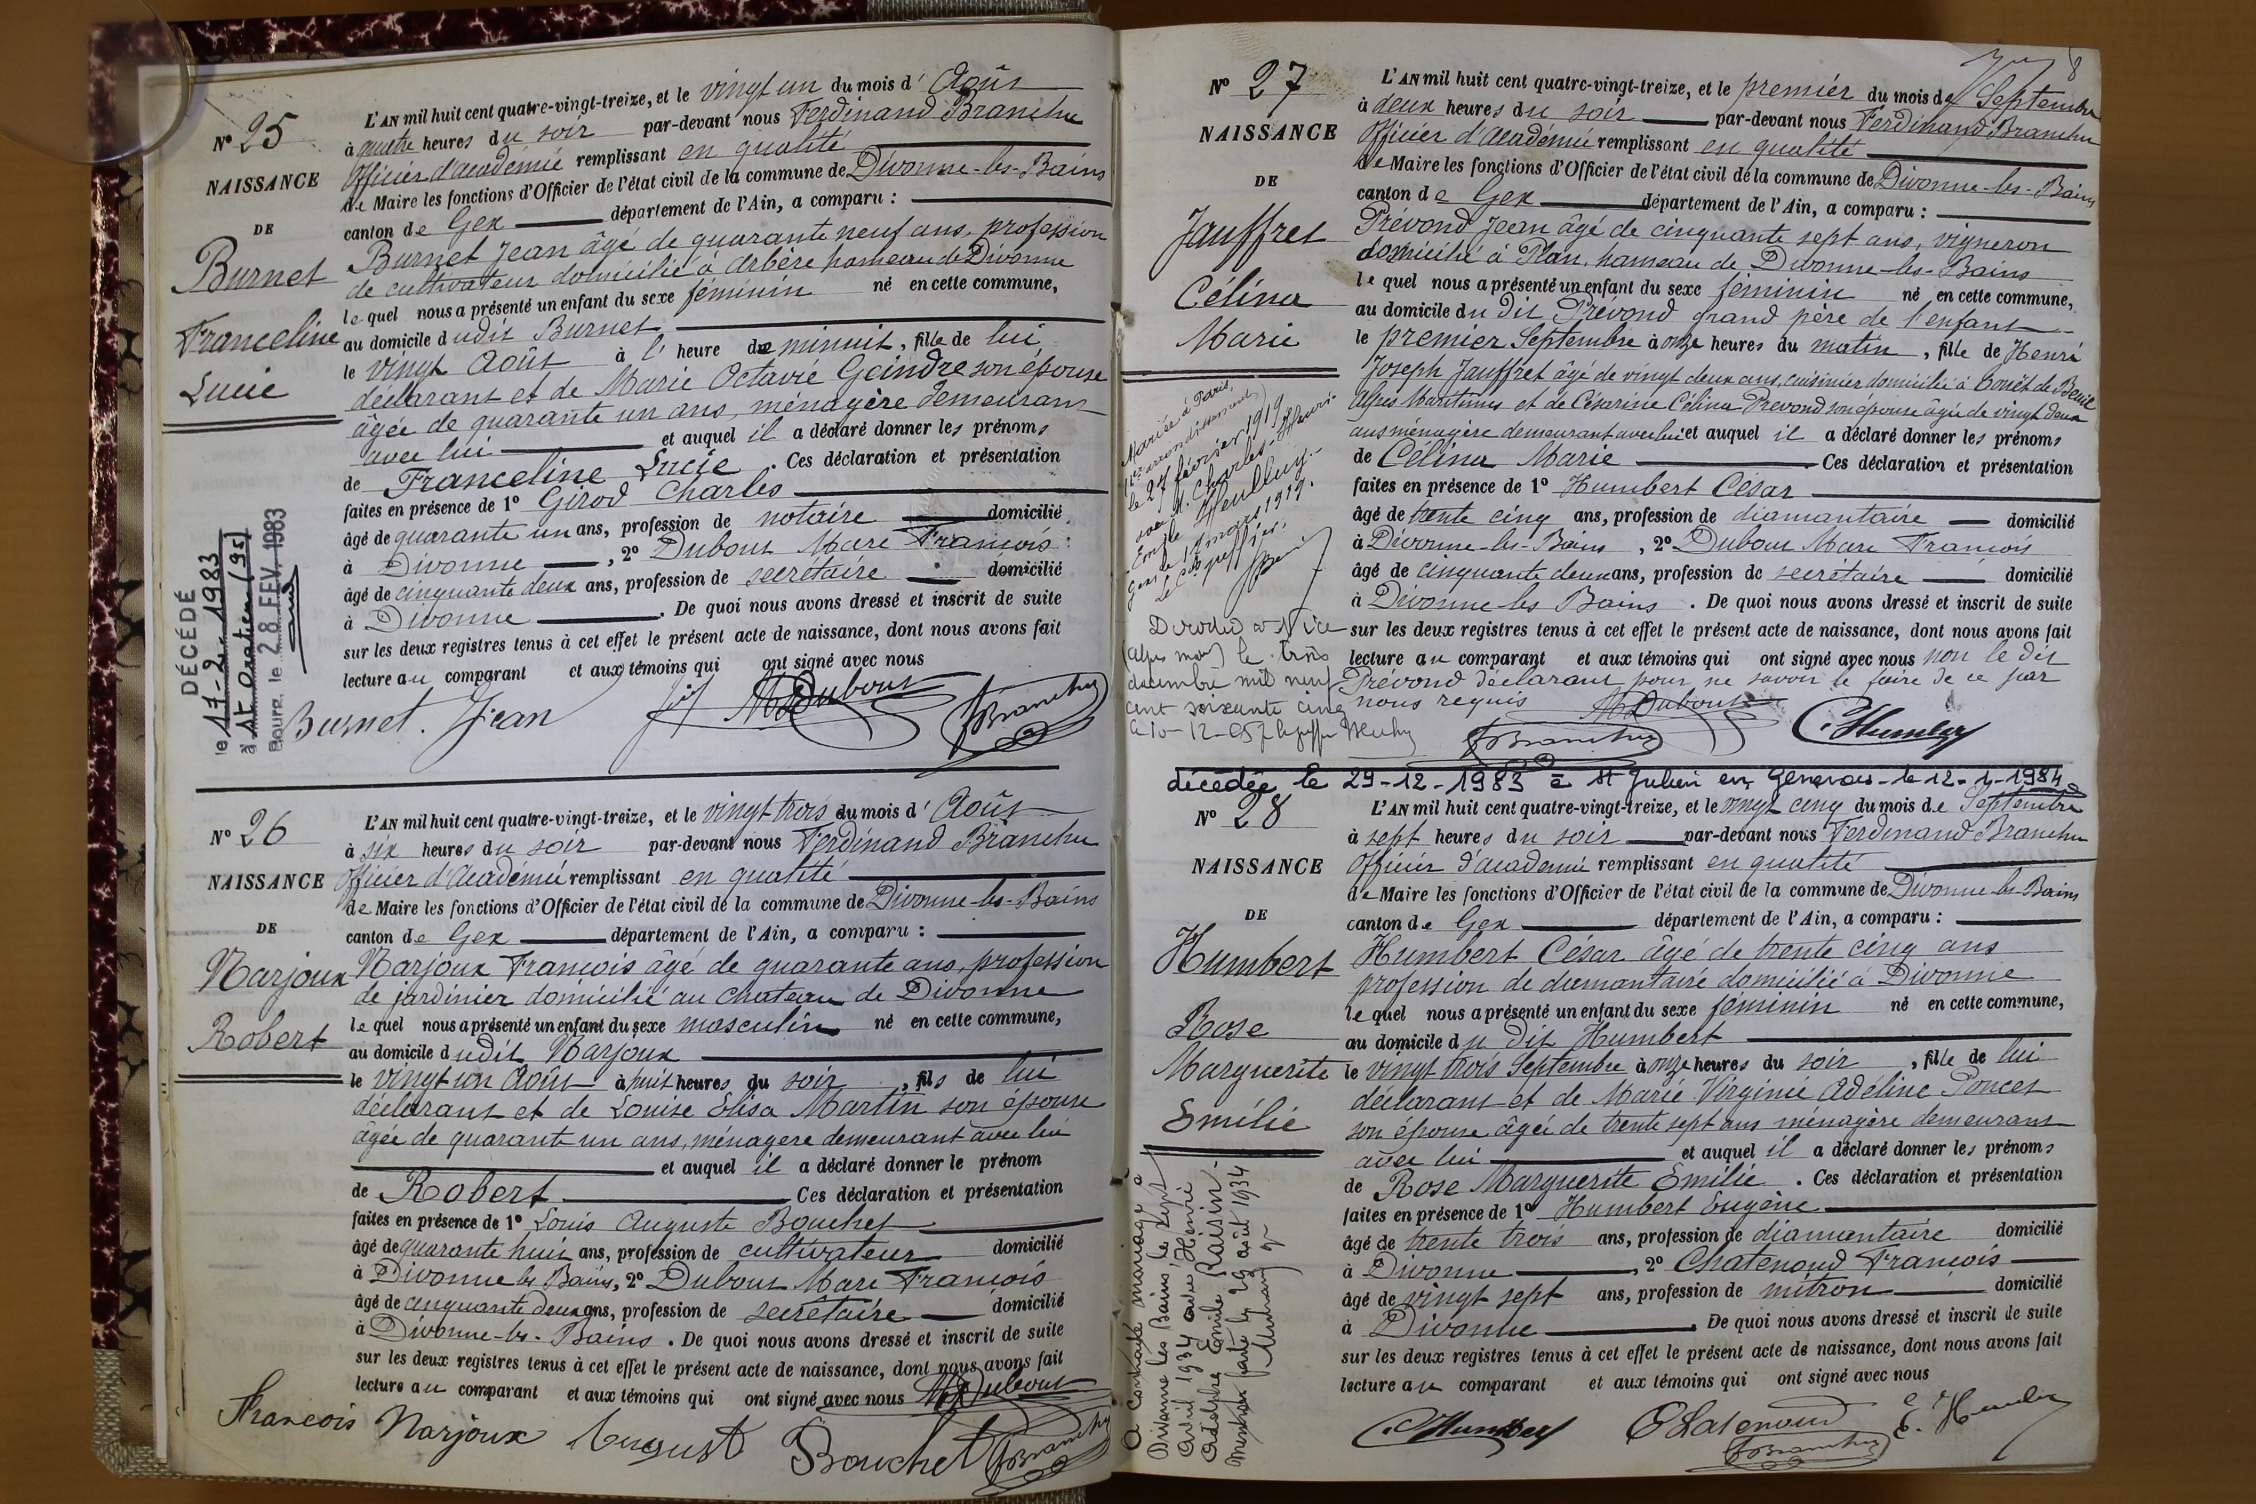 N° 25
NAISSANCE
DE
Burnet
Franceline
Lucie
L'AN mil huit cent quatre-vingt-treize, et le vingt un du mois d' Août
à quatre heures du soir par-devant nous Ferdinand Branchu
Officier d'académie remplissant en qualité
de Maire les fonctions d'Officier de l'état civil de la commune de Divonne-les-Bains
canton de Gex département de l'Ain, a comparu :
Burnet Jean âgé de quarante neuf ans, profession
de cultivateur domicilié à Arbère hameau de Divonne
lequel nous a présenté un enfant du sexe féminin né en cette commune,
au domicile dudit Burnet
le vingt Août à l' heure de minuit, fille de lui
déclarant et de Marie Octavie Geindre son épouse
âgée de quarante un ans, ménagère demeurant
avec lui et auquel il a déclaré donner les prénoms
de Franceline Lucie. Ces déclaration et présentation
faites en présence de 1° Girod Charles
âgé de quarante un ans, profession de notaire domicilié
à Divonne, 2° Dubout Marc François
âgé de cinquante deux ans, profession de secrétaire domicilié
à Divonne. De quoi nous avons dressé et inscrit de suite
sur les deux registres tenus à cet effet le présent acte de naissance, dont nous avons fait
lecture au comparant et aux témoins qui ont signé avec nous
Burnet Jean MDubout FBranchu
DÉCÉDÉ
le 17-2-1983
à
Bourg, le 28 FEV 1983
N° 26
NAISSANCE
DE
Narjoux
Robert
L'AN mil huit cent quatre-vingt-treize, et le vingt trois du mois d' Août
à six heures du soir par-devant nous Ferdinand Branchu
Officier d'Académie remplissant en qualité
de Maire les fonctions d'Officier de l'état civil de la commune de Divonne-les-Bains
canton de Gex département de l'Ain, a comparu :
Narjoux François âgé de quarante ans, profession
de jardinier domicilié au chateau de Divonne
lequel nous a présenté un enfant du sexe masculin né en cette commune,
au domicile dudit Narjoux
le vingt un Août à huit heures du soir, fils de lui
déclarant et de Louise Elisa Martin son épouse
âgée de quarante un ans, ménagère demeurant avec lui
et auquel il a déclaré donner le prénom
de Robert Ces déclaration et présentation
faites en présence de 1° Louis Auguste Bouchet
âgé de quarante huit ans, profession de cultivateur domicilié
à Divonne les Bains, 2° Dubout Marc François
âgé de cinquante deux ans, profession de secrétaire domicilié
à Divonne-les-Bains. De quoi nous avons dressé et inscrit de suite
sur les deux registres tenus à cet effet le présent acte de naissance, dont nous avons fait
lecture au comparant et aux témoins qui ont signé avec nous MDubout
François Narjoux August Bouchet FBranchu
8
N° 27
NAISSANCE
DE
Jauffret
Célina
Marie
L'AN mil huit cent quatre-vingt-treize, et le premier du mois de Septembre
à deux heures du soir par-devant nous Ferdinand Branchu
Officier d'Académie remplissant en qualité
de Maire les fonctions d'Officier de l'état civil de la commune de Divonne-les-Bains
canton de Gex département de l'Ain, a comparu :
Prévond Jean âgé de cinquante sept ans, vigneron
domicilié à Plan, hameau de Divonne-les-Bains
lequel nous a présenté un enfant du sexe féminin né en cette commune,
au domicile du dit Prévond grand père de l'enfant
le premier Septembre à onze heures du matin, fille de Henri
Joseph Jauffret âgé de vingt deux ans, cuisinier domicilié à de Beuil
Alpes Maritimes et de Césarine Célina Prevond son épouse âgée de vingt deux
ans ménagère demeurant avec lui et auquel il a déclaré donner les prénoms
de Célina Marie Ces déclaration et présentation
faites en présence de 1° Humbert César
âgé de trente cinq ans, profession de diamantaire domicilié
à Divonne-les-Bains, 2° Dubout Marc François
âgé de cinquante deux ans, profession de secrétaire domicilié
à Divonne les Bains. De quoi nous avons dressé et inscrit de suite
sur les deux registres tenus à cet effet le présent acte de naissance, dont nous avons fait
lecture au comparant et aux témoins qui ont signé avec nous non le dit
Prévond déclarant pour ne savoir le faire de ce par
nous requis MDubout C. Humbert
FBranchu
Mariée à Paris,
(1er arrondissement)
le 27 février 1919
avec M. Charles-Henri-
Heulluy.-
17 mars 1919.
Le Greffier,
Divorcée à Nice
(Alpes mar) le trois
décembre mil neuf
cent soixante cinq
décédée le 29-12-1983 à St Julien en Genevois - le 12-1-1984
N° 28
NAISSANCE
DE
Humbert
Rose
Marguerite
Emélie
L'AN mil huit cent quatre-vingt-treize, et le vingt cinq du mois de Septembre
à sept heures du soir par-devant nous Ferdinand Branchu
Officier d'academie remplissant en qualité
de Maire les fonctions d'Officier de l'état civil de la commune de Divonne-les-Bains
canton de Gex département de l'Ain, a comparu :
Humbert César âgé de trente cinq ans
profession de diamantaire domicilié à Divonne
lequel nous a présenté un enfant du sexe féminin né en cette commune,
au domicile du dit Humbert
le vingt trois Septembre à onze heures du soir, fille de lui
déclarant et de Marie Virginie Adéline Poncet
son épouse âgée de trente sept ans ménagère demeurant
avec lui et auquel il a déclaré donner les prénoms
de Rose Marguerite Emélie. Ces déclaration et présentation
faites en présence de 1° Humbert Eugène
âgé de trente trois ans, profession de diamantaire domicilié
à Divonne, 2° Chatenoud François
âgé de vingt sept ans, profession de mitron domicilié
à Divonne. De quoi nous avons dressé et inscrit de suite
sur les deux registres tenus à cet effet le présent acte de naissance, dont nous avons fait
lecture au comparant et aux témoins qui ont signé avec nous
C. Humbert Chatenoud E. Humbert
FBranchu
A contracté mariage à
Divonne les Bains, le sept
avril 1934 avec Henri
Adolphe Emile Raisin.
Mention faite le 29 août 1934